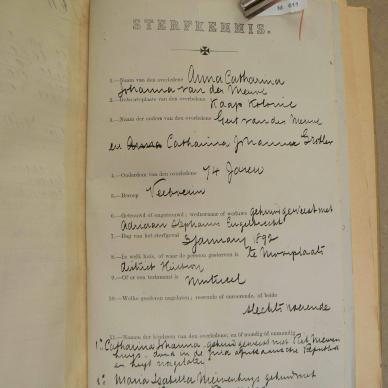 M 611
STERFKENNIS.
1.—Naam van den overledene Anna Catharina
Johanna van der Merwe
2.—Geboorteplaats van den overledene Kaap Kolonie
3.—Naam der ouders van den overledene Gert van der Merwe
en Catharina Johanna
4.—Ouderdom van den overledene 74 Jaren
5.—Beroep Veeboerin
6.—Getrouwd of ongetrouwd; weduwnaar of weduwe gehuwd geweest met
Adriaan Stephanus Engelbrecht
7.—Dag van het sterfgeval 5 January 1892
8.—In welk huis, of waar de persoon gestorven is te
district
9.—Of er een testament is mutueel
10.—Welke goederen nagelaten; roerende of onroerende, of beide
slechts roerende
11.—Namen der kinderen van den overledene, en of mondig of onmondig
1º. Catharina Johanna, gehuwd geweest met
dood in de Zuid Afrikaansche Republiek
en
2º. Maria Isabella gehuwd met